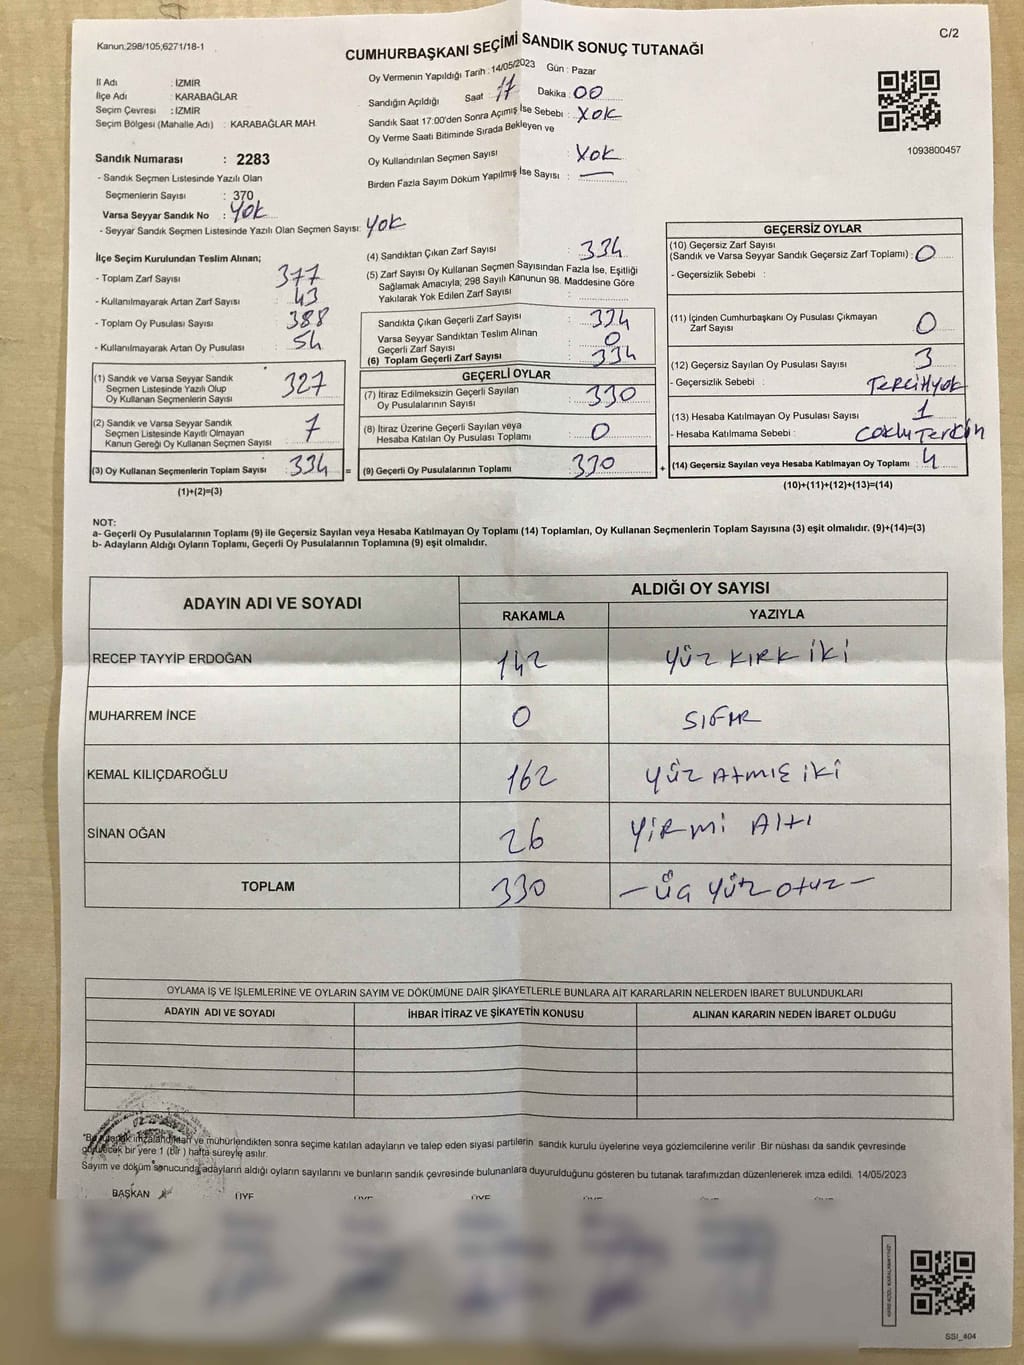 Kanun;298/105;6271/18-1
C/2
CUMHURBAŞKANI SEÇİMİ SANDIK SONUÇ TUTANAĞI
İl Adı : İZMİR
İlçe Adı : KARABAĞLAR
Seçim Çevresi : İZMİR
Seçim Bölgesi (Mahalle Adı) : KARABAĞLAR MAH.
Oy Vermenin Yapıldığı Tarih : 14/05/2023 Gün : Pazar
Sandığın Açıldığı Saat : 17 Dakika : 00
Sandık Saat 17:00'den Sonra Açımış İse Sebebi : YOK
Oy Verme Saati Bitiminde Sırada Bekleyen ve
Oy Kullandırılan Seçmen Sayısı : YOK
Birden Fazla Sayım Döküm Yapılmış İse Sayısı : —
1093800457
Sandık Numarası : 2283
- Sandık Seçmen Listesinde Yazılı Olan
Seçmenlerin Sayısı : 370
Varsa Seyyar Sandık No : YOK
- Seyyar Sandık Seçmen Listesinde Yazılı Olan Seçmen Sayısı: YOK
İlçe Seçim Kurulundan Teslim Alınan;
- Toplam Zarf Sayısı : 377
- Kullanılmayarak Artan Zarf Sayısı : 43
- Toplam Oy Pusulası Sayısı : 388
- Kullanılmayarak Artan Oy Pusulası : 54
(1) Sandık ve Varsa Seyyar Sandık
Seçmen Listesinde Yazılı Olup
Oy Kullanan Seçmenlerin Sayısı : 327
(2) Sandık ve Varsa Seyyar Sandık
Seçmen Listesinde Kayıtlı Olmayan
Kanun Gereği Oy Kullanan Seçmen Sayısı : 7
(3) Oy Kullanan Seçmenlerin Toplam Sayısı : 334
(1)+(2)=(3)
(4) Sandıktan Çıkan Zarf Sayısı : 334
(5) Zarf Sayısı Oy Kullanan Seçmen Sayısından Fazla İse, Eşitliği
Sağlamak Amacıyla, 298 Sayılı Kanunun 98. Maddesine Göre
Yakılarak Yok Edilen Zarf Sayısı :
Sandıkta Çıkan Geçerli Zarf Sayısı : 334
Varsa Seyyar Sandıktan Teslim Alınan
Geçerli Zarf Sayısı : 0
(6) Toplam Geçerli Zarf Sayısı : 334
GEÇERLİ OYLAR
(7) İtiraz Edilmeksizin Geçerli Sayılan
Oy Pusulalarının Sayısı : 330
(8) İtiraz Üzerine Geçerli Sayılan veya
Hesaba Katılan Oy Pusulaları Toplamı : 0
= (9) Geçerli Oy Pusulalarının Toplamı : 330
GEÇERSİZ OYLAR
(10) Geçersiz Zarf Sayısı
(Sandık ve Varsa Seyyar Sandık Geçersiz Zarf Toplamı) : 0
- Geçersizlik Sebebi :
(11) İçinden Cumhurbaşkanı Oy Pusulası Çıkmayan
Zarf Sayısı : 0
(12) Geçersiz Sayılan Oy Pusulası Sayısı : 3
- Geçersizlik Sebebi : TERCİH YOK
(13) Hesaba Katılmayan Oy Pusulası Sayısı : 1
- Hesaba Katılmama Sebebi :
+ (14) Geçersiz Sayılan veya Hesaba Katılmayan Oy Toplamı : 4
(10)+(11)+(12)+(13)=(14)
NOT:
a- Geçerli Oy Pusulalarının Toplamı (9) ile Geçersiz Sayılan veya Hesaba Katılmayan Oy Toplamı (14) Toplamları, Oy Kullanan Seçmenlerin Toplam Sayısına (3) eşit olmalıdır. (9)+(14)=(3)
b- Adayların Aldığı Oyların Toplamı, Geçerli Oy Pusulalarının Toplamına (9) eşit olmalıdır.
ADAYIN ADI VE SOYADI
ALDIĞI OY SAYISI
RAKAMLA YAZIYLA
RECEP TAYYİP ERDOĞAN 142 YÜZ KIRK İKİ
MUHARREM İNCE 0 SIFIR
KEMAL KILIÇDAROĞLU 162 YÜZ ATMIŞ İKİ
SİNAN OĞAN 26 YİRMİ ALTI
TOPLAM 330 — ÜÇ YÜZ OTUZ —
OYLAMA İŞ VE İŞLEMLERİNE VE OYLARIN SAYIM VE DÖKÜMÜNE DAİR ŞİKAYETLERLE BUNLARA AİT KARARLARIN NELERDEN İBARET BULUNDUKLARI
ADAYIN ADI VE SOYADI İHBAR İTİRAZ VE ŞİKAYETİN KONUSU ALINAN KARARIN NEDEN İBARET OLDUĞU
*Bu tutanak imzalandıktan ve mühürlendikten sonra seçime katılan adayların ve talep eden siyasi partilerin sandık kurulu üyelerine veya gözlemcilerine verilir. Bir nüshası da sandık çevresinde
görülecek bir yere 1 (bir) hafta süreyle asılır.
Sayım ve döküm sonucunda adayların aldığı oyların sayılarını ve bunların sandık çevresinde bulunanlara duyurulduğunu gösteren bu tutanak tarafımızdan düzenlenerek imza edildi. 14/05/2023
BAŞKAN ÜYE ÜYE ÜYE ÜYE
SSI_404